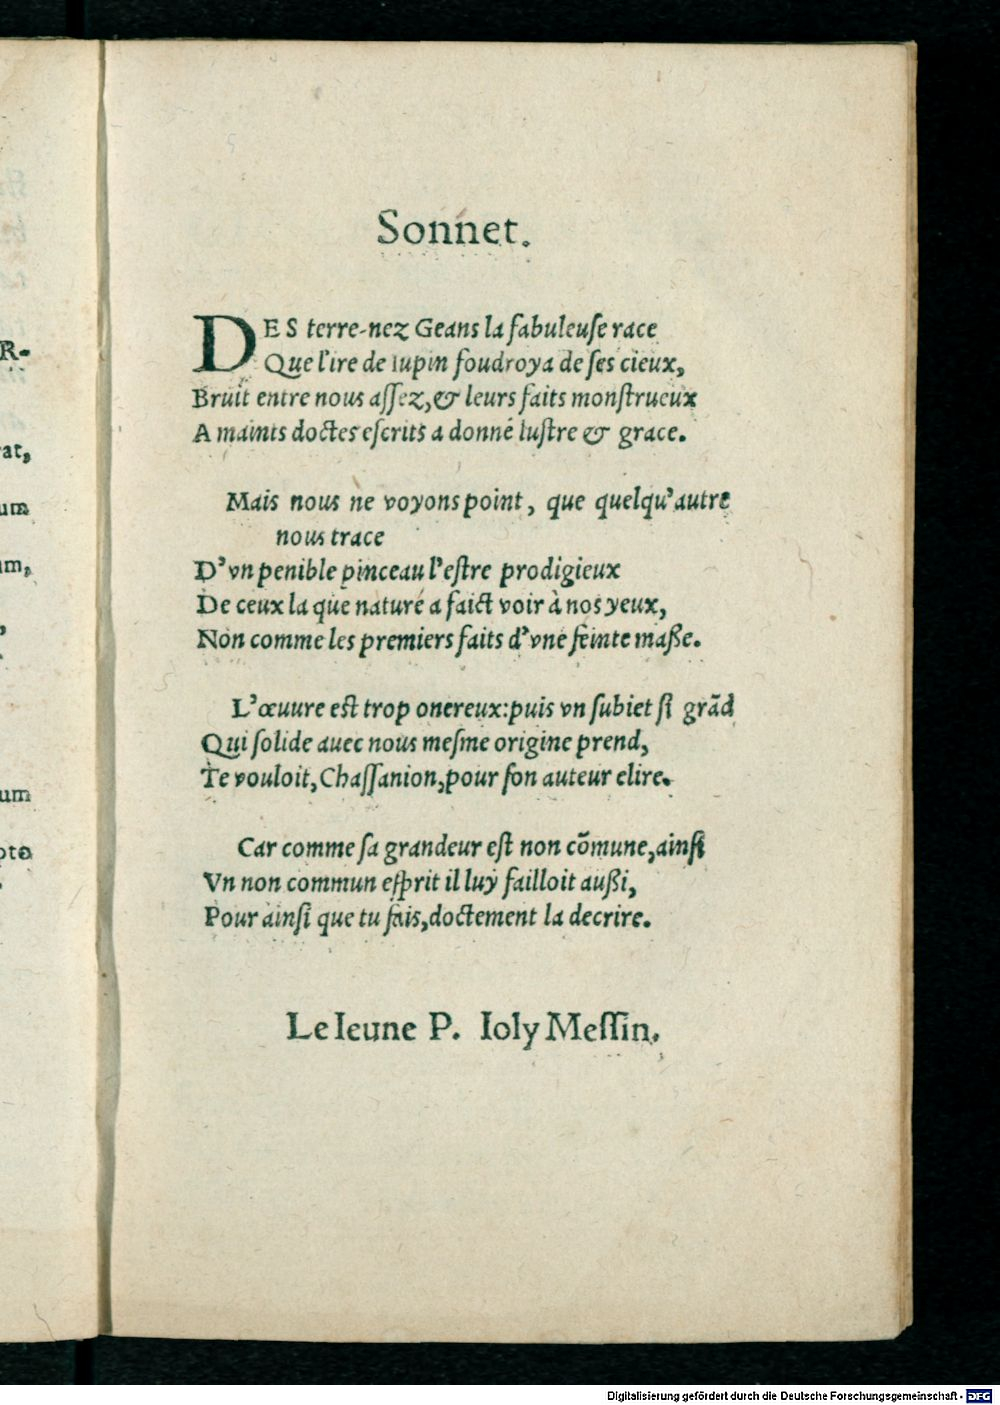 R-
at,
um
um,
,
um
pto
Sonnet.
DES terre-nez Geans la fabuleuſe race
Que l'ire de Iupin foudroya de ſes cieux,
Bruit entre nous aſſez, & leurs faits monſtrueux
A maints doctes eſcrits a donné luſtre & grace.
Mais nous ne voyons point, que quelqu'autre
nous trace
D'vn penible pinceau l'eſtre prodigieux
De ceux la que naturé a faict voir à nos yeux,
Non comme les premiers faits d'vne feinte maſſe.
L'œuure eſt trop onereux: puis vn ſubiet ſi grãd
Qui ſolide auec nous meſme origine prend,
Te vouloit, Chaſſanion, pour ſon auteur elire.
Car comme ſa grandeur eſt non cõmune, ainſi
Vn non commun eſprit il luy failloit auſſi,
Pour ainſi que tu fais, doctement la decrire.
Le Ieune P. Ioly Meſſin.
Digitalisierung gefördert durch die Deutsche Forschungsgemeinschaft - DFG